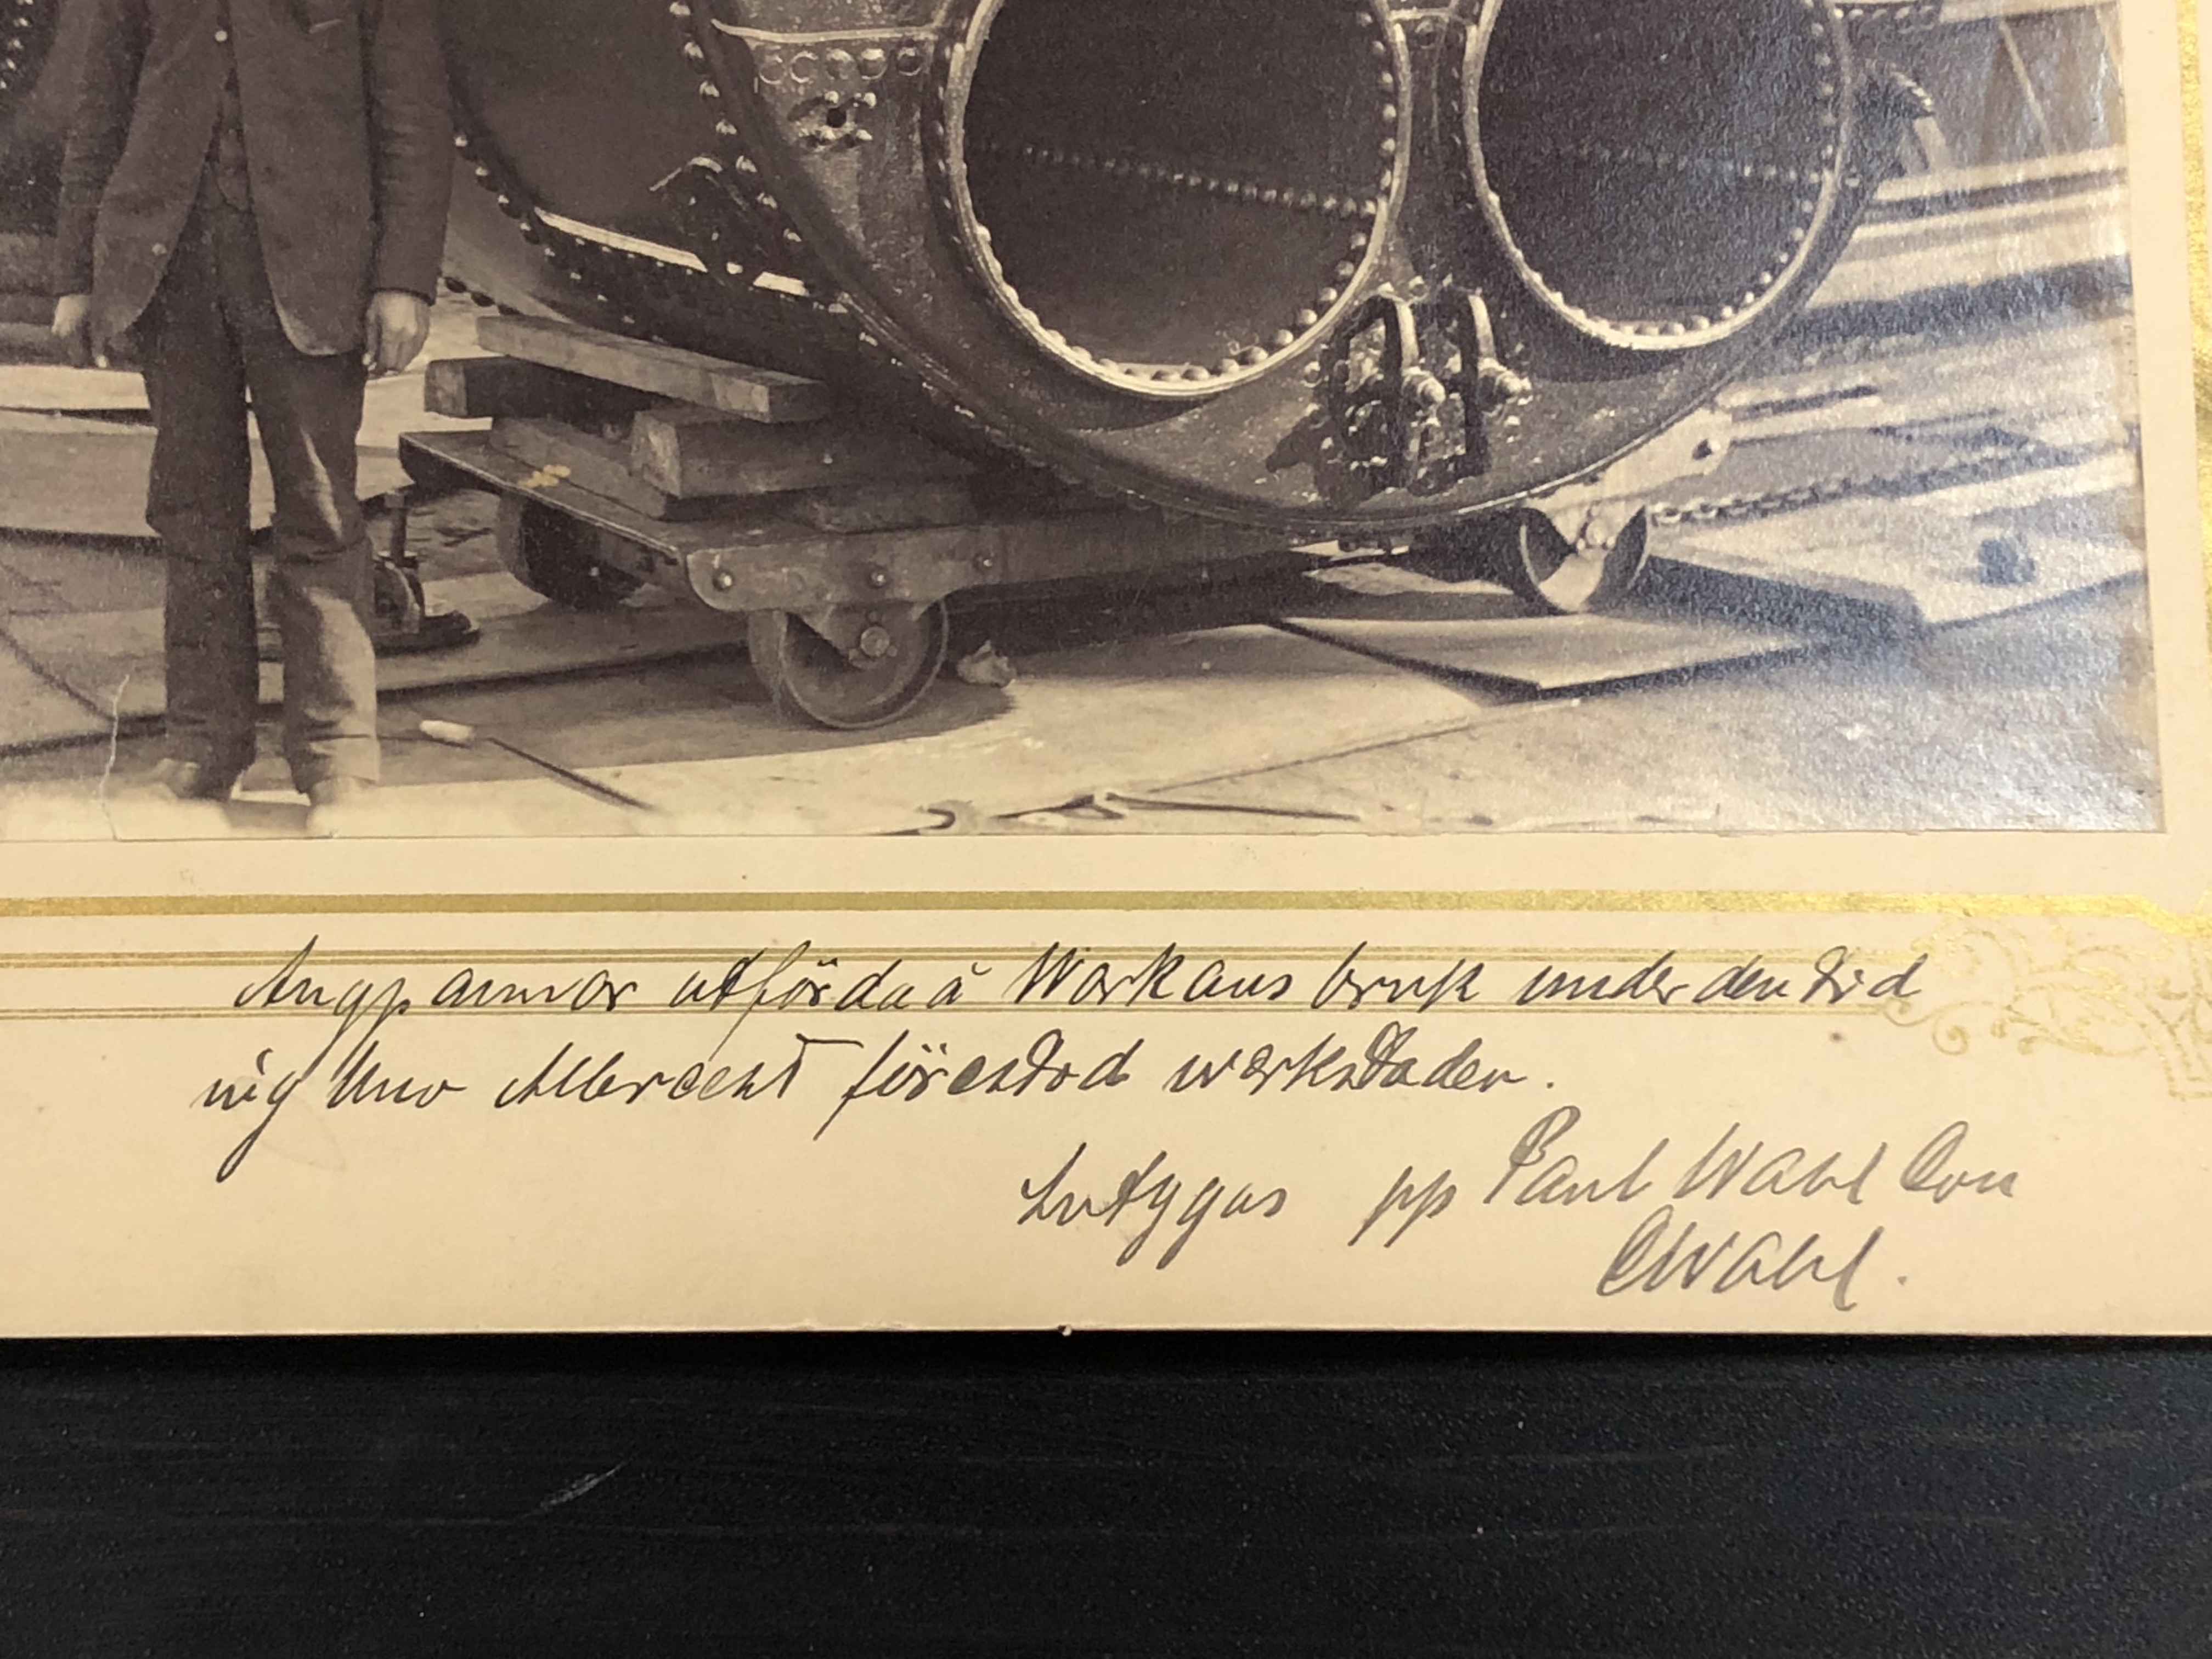 Ångpannor utförda å Warkaus bruk under den tid
ing Uno Albrecht förestod werkstaden.
Intygas pp Paul Wahl Co
CWahl.